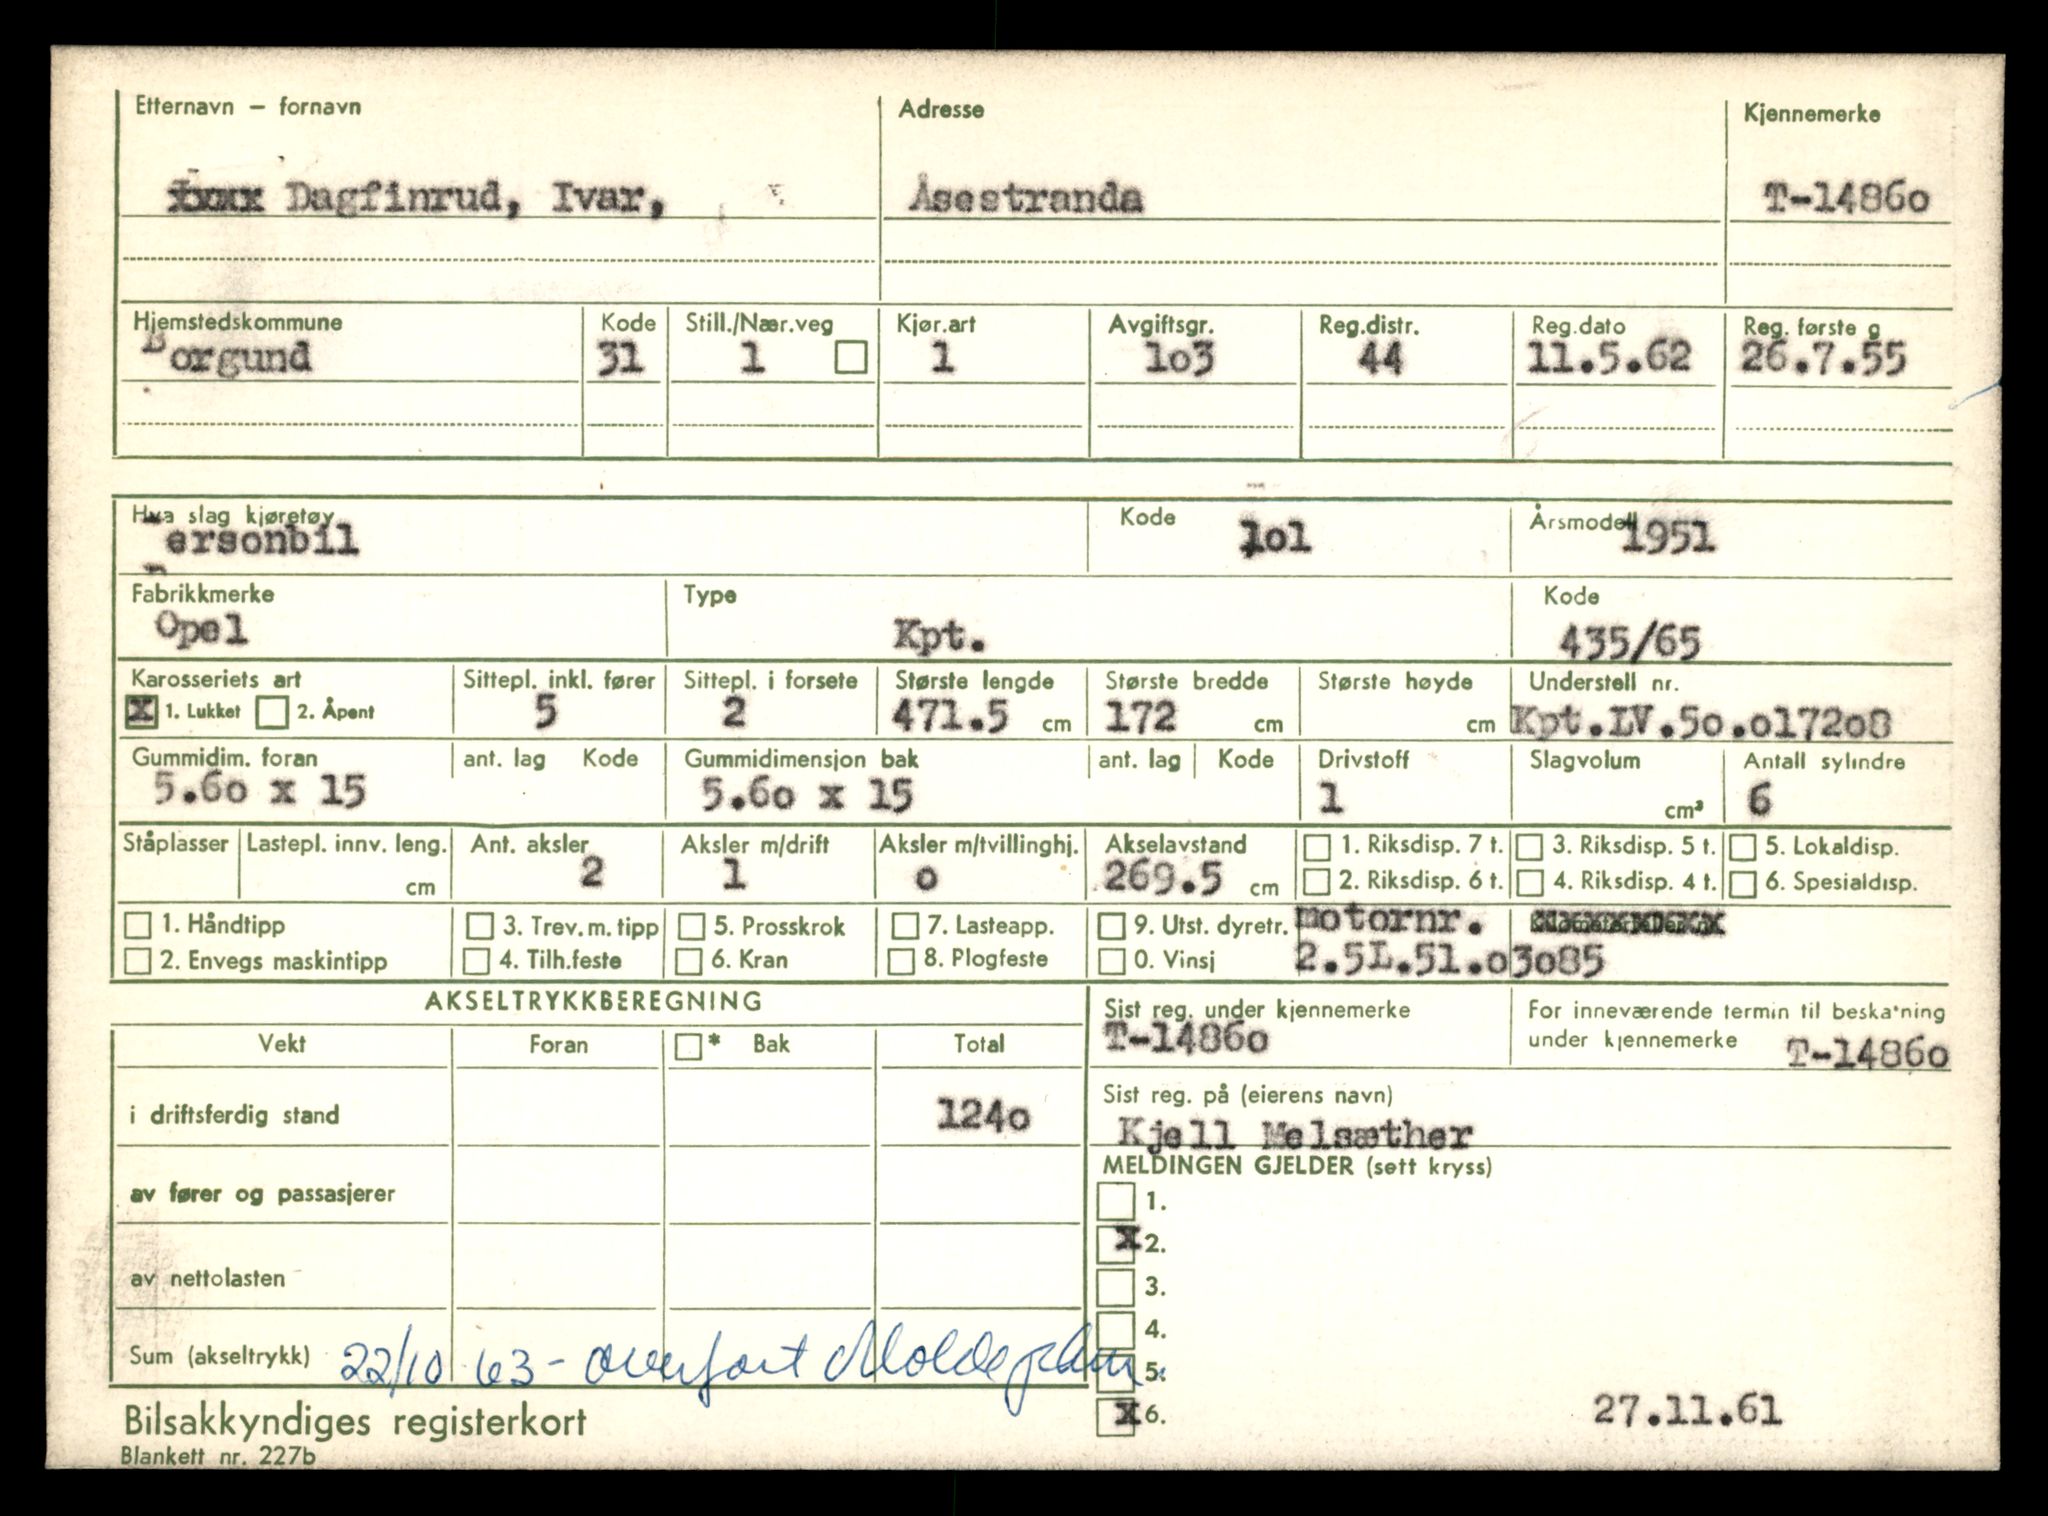 Etternavn – fornavn Adresse Kjennemerke
Dagfinrud, Ivar, Åsestranda T-1486o
Hjemstedskommune Kode Still./Nær.veg Kjør.art Avgiftsgr. Reg.distr. Reg.dato Reg. første g
Borgund 31 1 1 1o3 44 11.5.62 26.7.55
Hva slag kjøretøy Kode Årsmodell
Personbil 1o1 1951
Fabrikkmerke Type Kode
Opel Kpt. 435/65
Karosseriets art Sittepl. inkl. fører Sittepl. i forsete Største lengde Største bredde Største høyde Understell nr.
X 1. Lukket 2. Åpent 5 2 471.5 cm 172 cm cm Kpt.LV.5o.o172o8
Gummidim. foran ant. lag Kode Gummidimensjon bak ant. lag Kode Drivstoff Slagvolum Antall sylindre
5.6o x 15 5.6o x 15 1 cm³ 6
Ståplasser Lastepl. innv. leng. Ant. aksler Aksler m/drift Aksler m/tvillinghj. Akselavstand 1. Riksdisp. 7 t. 3. Riksdisp. 5 t. 5. Lokaldisp.
cm 2 1 o 269.5 cm 2. Riksdisp. 6 t. 4. Riksdisp. 4 t. 6. Spesialdisp.
1. Håndtipp 3. Trev. m. tipp 5. Prosskrok 7. Lasteapp. 9. Utst. dyretr. motornr.
2. Envegs maskintipp 4. Tilh.feste 6. Kran 8. Plogfeste 0. Vinsj 2.5L.51.o3o85
AKSELTRYKKBEREGNING Sist reg. under kjennemerke For inneværende termin til beskatning
Vekt Foran * Bak Total T-1486o under kjennemerke T-1486o
Sist reg. på (eierens navn)
i driftsferdig stand 124o Kjell Melsæther
MELDINGEN GJELDER (sett kryss)
av fører og passasjerer 1.
X 2.
av nettolasten 3.
4.
Sum (akseltrykk) 22/10 63 - overført Molde 5.
Bilsakkyndiges registerkort X 6. 27.11.61
Blankett nr. 227b